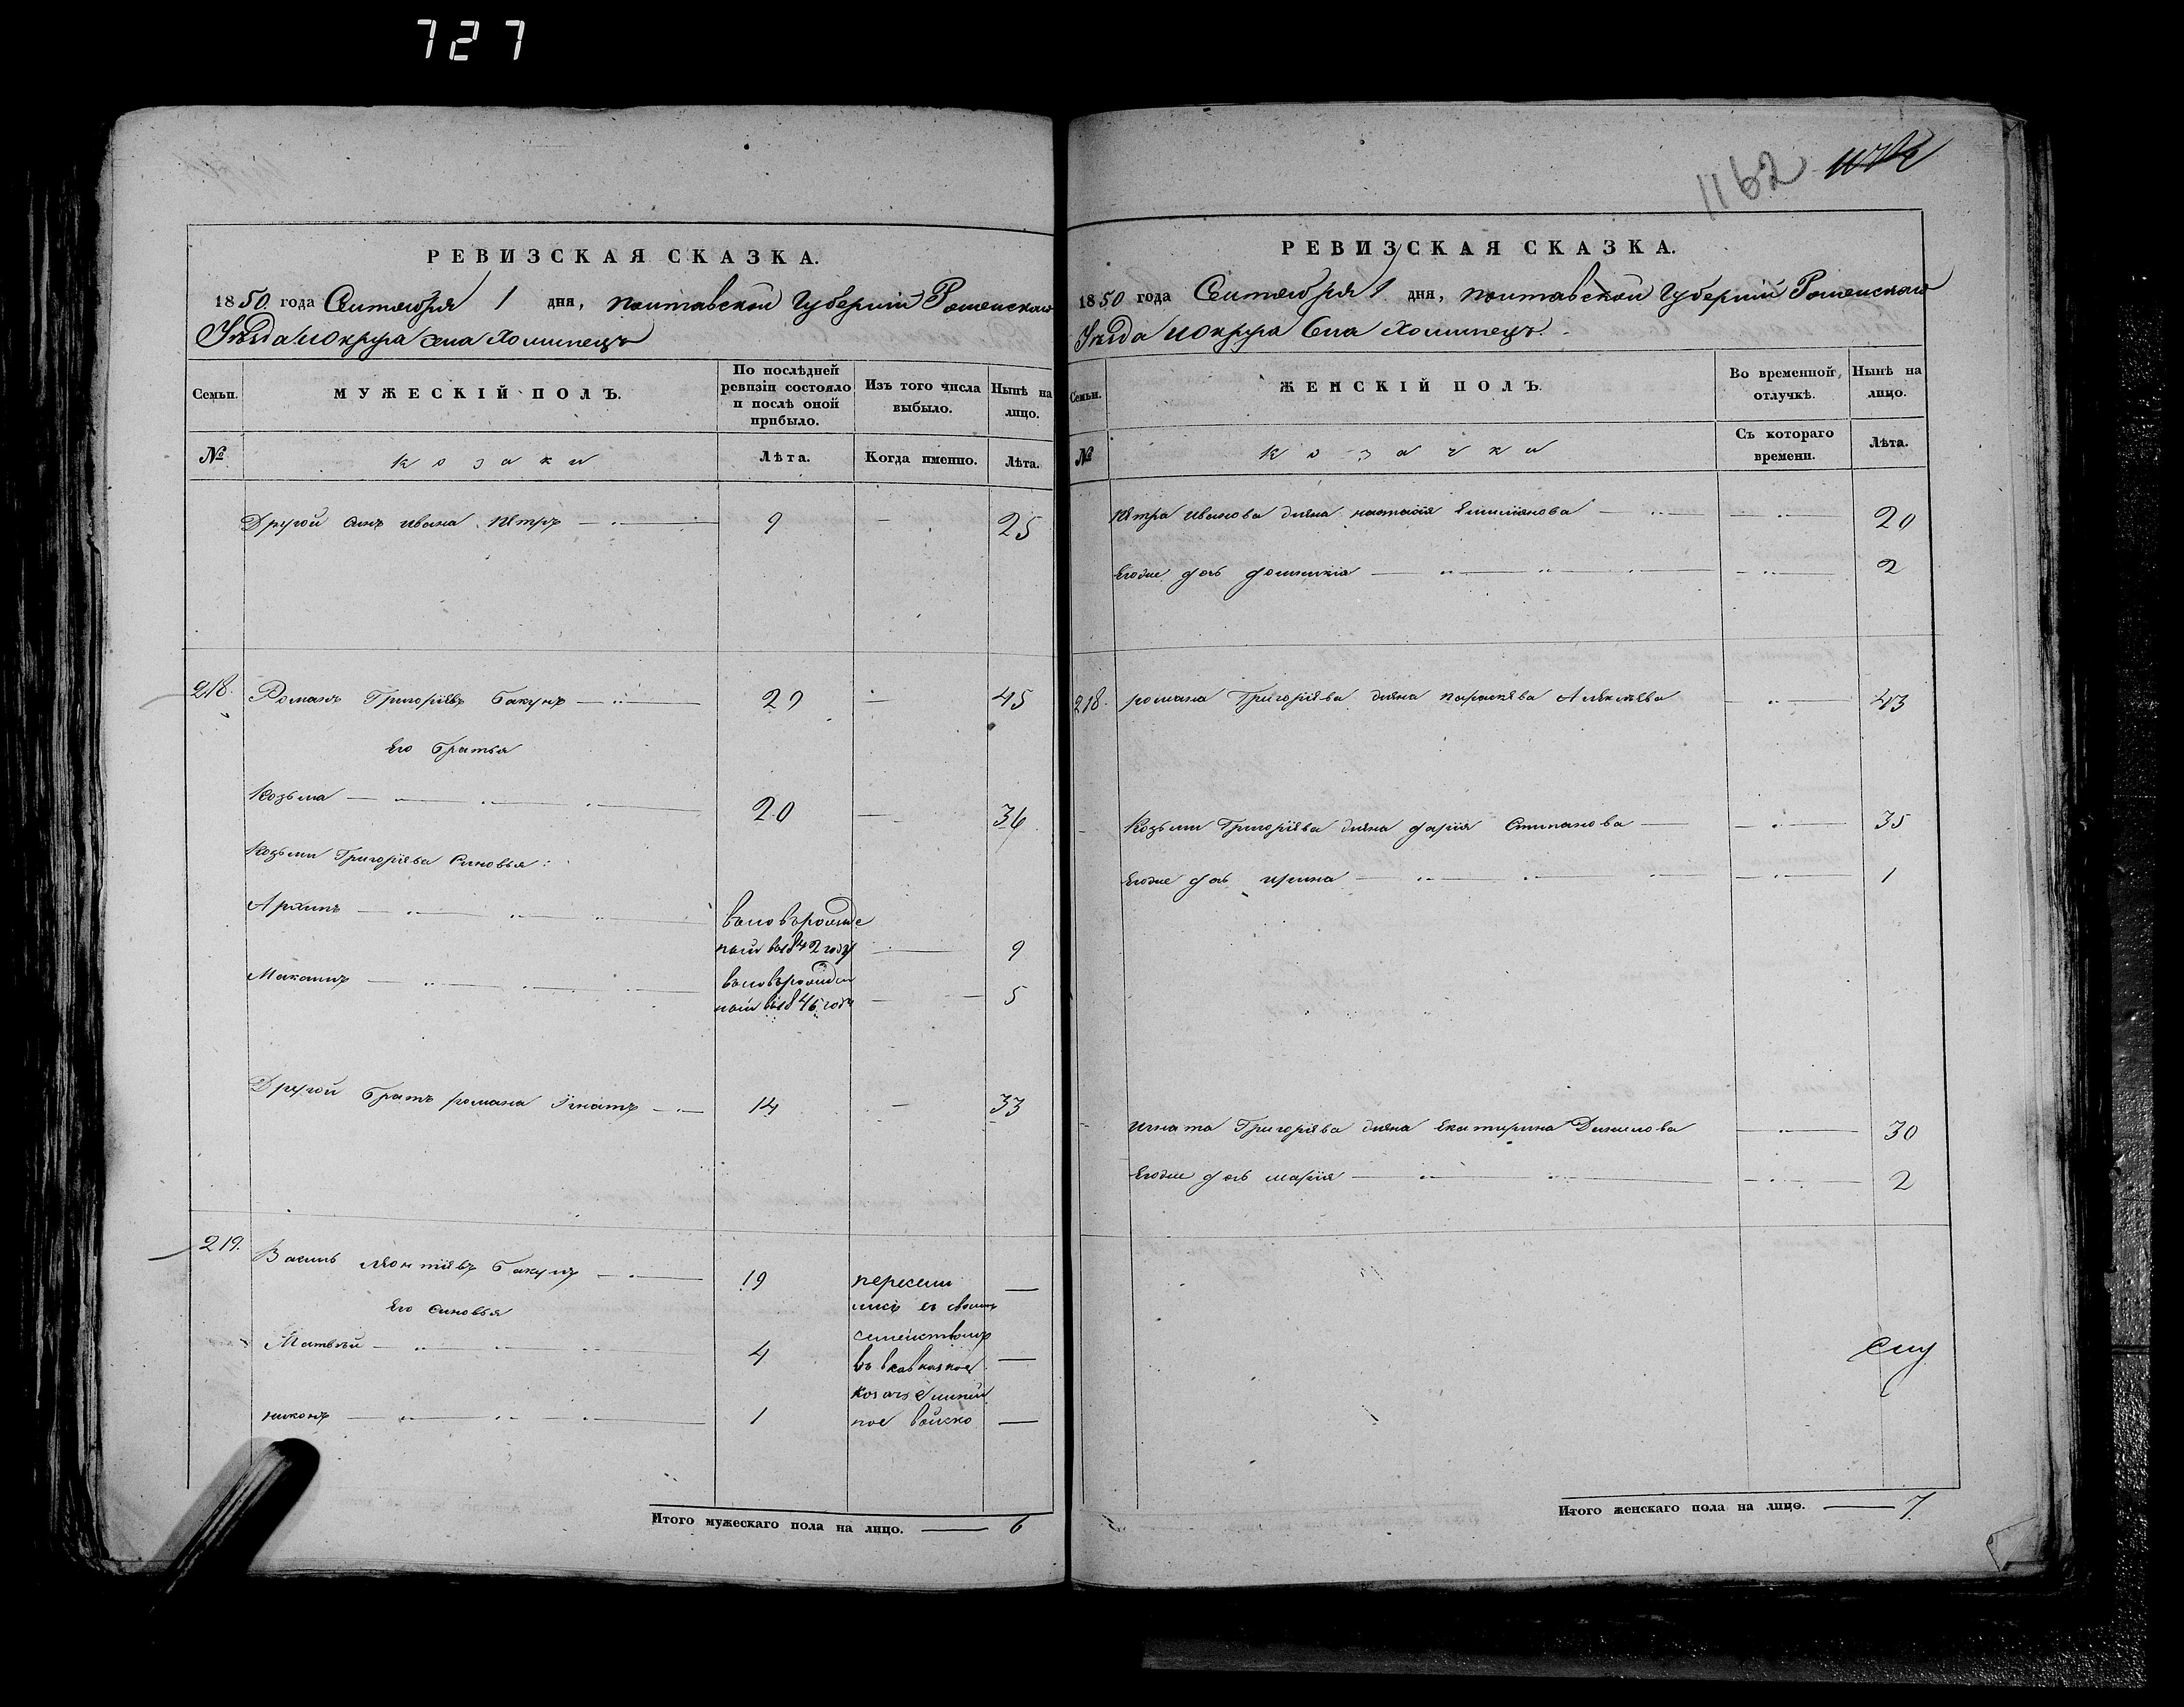 727
РЕВИЗСКАЯ СКАЗКА.
1850 года Сентября 1 дня, Полтавской Губернии Роменскаго
Уезда и округа села Хоминецъ
Семьи.
МУЖЕСКІЙ ПОЛЪ.
По послѣдней ревизіи состояло и послѣ оной прибыло.
Изъ того числа выбыло.
Нынѣ на лицо.
№
козаки
Лѣта.
Когда именно.
Лѣта.
Другой синъ ивана Петръ 9 25
218. Романъ Григоріевъ Бакунъ 29 45
Его братья
Козьма 20 36
Козьми Григоріева Синовья:
Архипъ вновьрожде
ный въ 1842 году 9
Макаимъ вновьрожден
ный въ 1846 году 5
Другой Братъ романа Игнатъ 14 33
219. Василь Леонтіевъ Бакунъ 19 пересели
лисъ съ своимъ
Его синовья
семействомъ
Матвѣй 4 въ кавказкое
козаче линей
никонъ 1 ное войско
Итого мужескаго пола на лицо. 6
1162
РЕВИЗСКАЯ СКАЗКА.
1850 года Сентября 1 дня, Полтавской Губернии Роменскаго
Уезда и округа Села Хоминецъ
Семьи.
ЖЕНСКІЙ ПОЛЪ.
Во временной отлучкѣ.
Нынѣ на лицо.
№
козачки
Съ котораго времени.
Лѣта.
Петра Иванова жена настасія Емиліянова 20
Егоже дочь домникія 2
218. романа Григоріева жена параскева Алексѣева 43
Козьми Григоріева жена дарія Степанова 35
Егоже дочь ирина 1
игната Григоріева жена Екатерина Данилова 30
Егоже дочь марія 2
Итого женскаго пола на лицо. 7